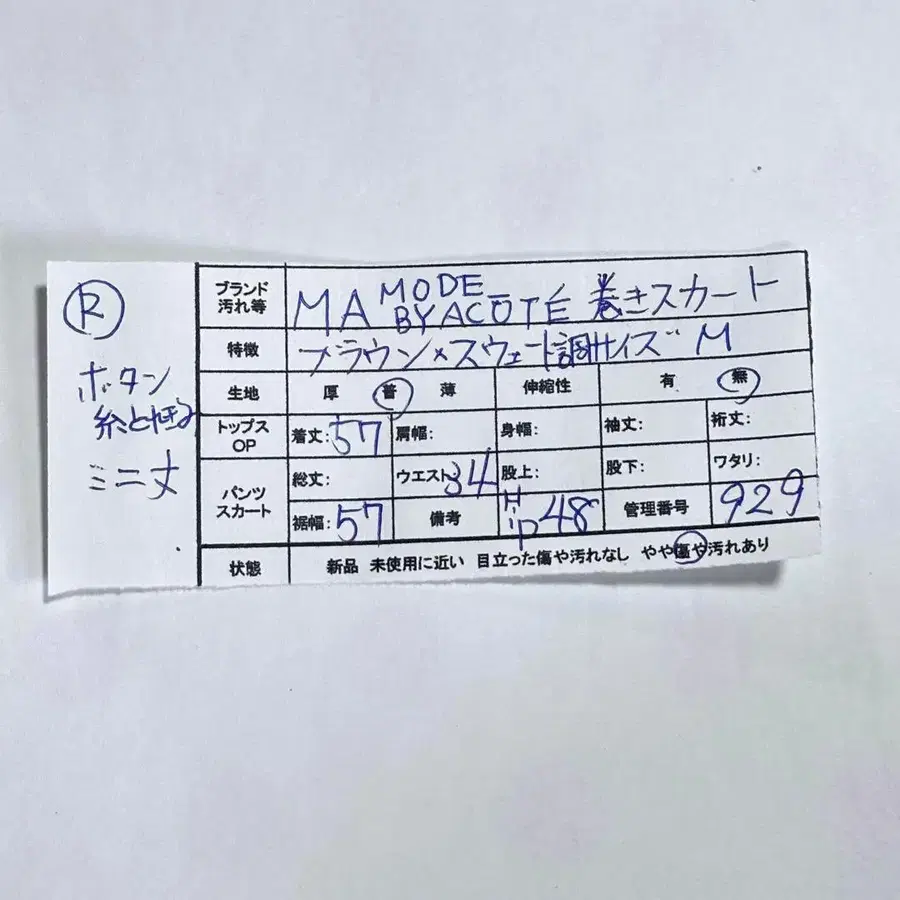 R
ボタン
糸とれてる
ミニ丈
ブランド
汚れ等
MA MODE_
BYACOTÉ 巻きスカート
特徴 ブラウン×スウェード調サイズM
生地 厚 普 薄 伸縮性 有 無
トップス
OP
着丈:57 肩幅: 身幅: 袖丈: 裄丈:
パンツ
スカート
総丈: ウエスト:34 股上: 股下: ワタリ:
裾幅:57 備考 ヒップ48 管理番号 929
状態 新品 未使用に近い 目立った傷や汚れなし やや傷や汚れあり